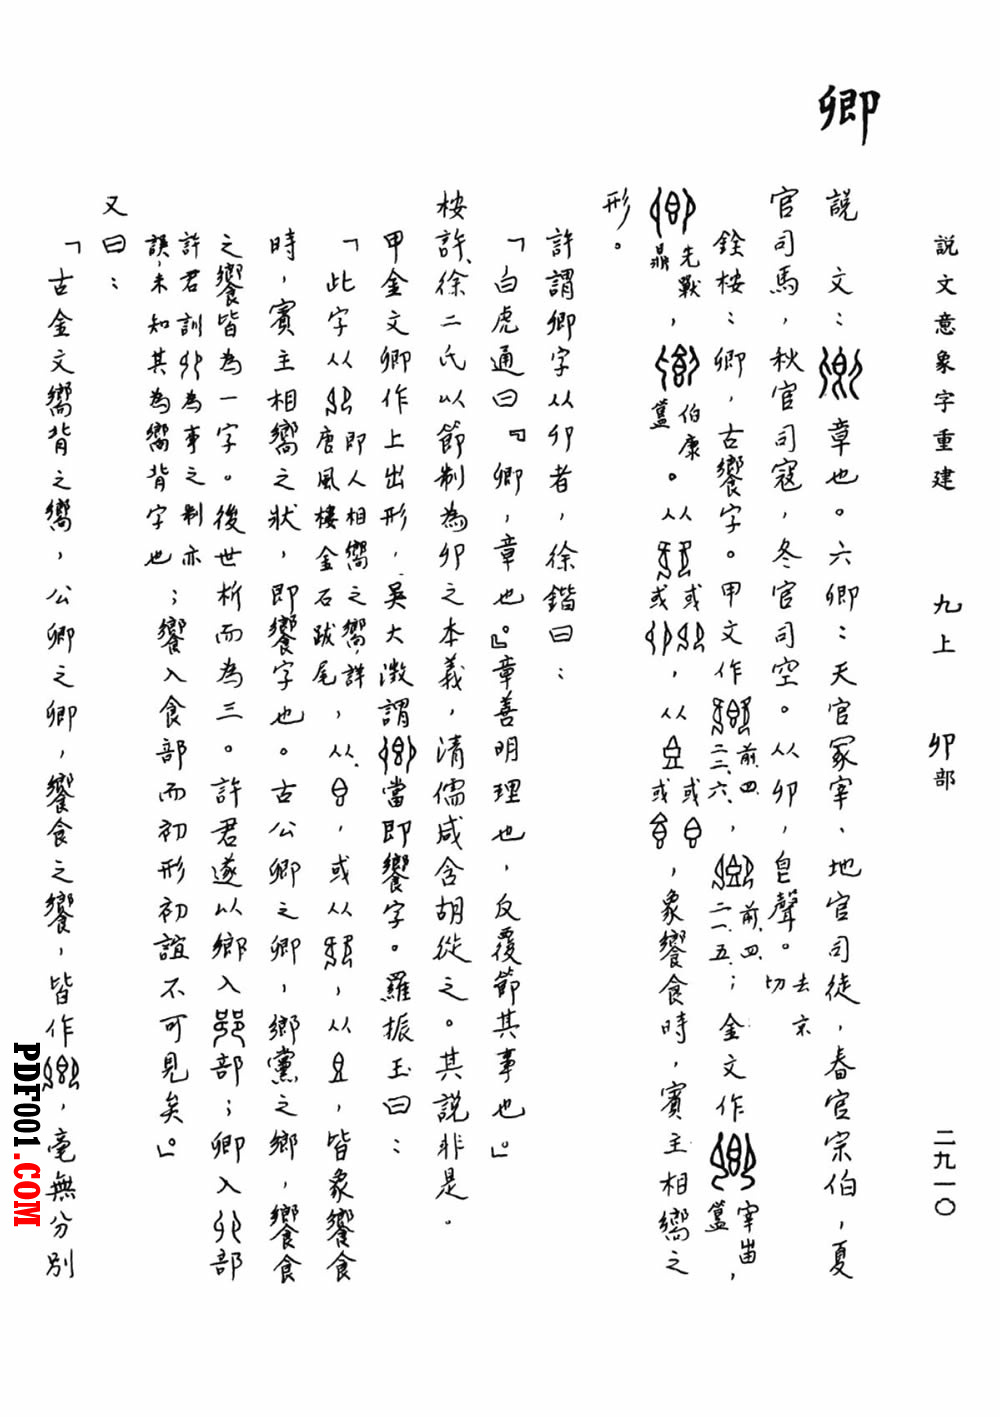 說文意象字重建　九上　卯部　二九一〇
卿
說　文：章也。六卿：天官冢宰、地官司徒，春官宗伯，夏
官司馬，秋官司寇，冬官司空。从卯，皀聲。去京切
銓桉：卿，古饗字。甲文作前四、二三、六，前四、二一、五；金文作宰甾簋，
先戰鼎，伯康簋。从或或，从或或，象饗食時，賓主相嚮之
形。
許謂卿字从卯者，徐鍇曰：
「白虎通曰『卿，章也。』章善明理也，反覆節其事也。」
桉許、徐二氏以節制為卯之本義，清儒咸含胡從之。其說非是。
甲金文卿作上出形，吳大澂謂當即饗字。羅振玉曰：
「此字从即人相嚮之嚮，詳唐風樓金石跋尾，从，或从，从，皆象饗食
時，賓主相嚮之狀，即饗字也。古公卿之卿，鄉黨之鄉，饗食
之饗皆為一字。後世析而為三。許君遂以鄉入部；卿入部
許君訓為事之制亦誤，未知其為嚮背字也；饗入食部而初形初誼不可見矣。」
又曰：
「古金文嚮背之嚮，公卿之卿，饗食之饗，皆作，毫無分別
PDF001.COM